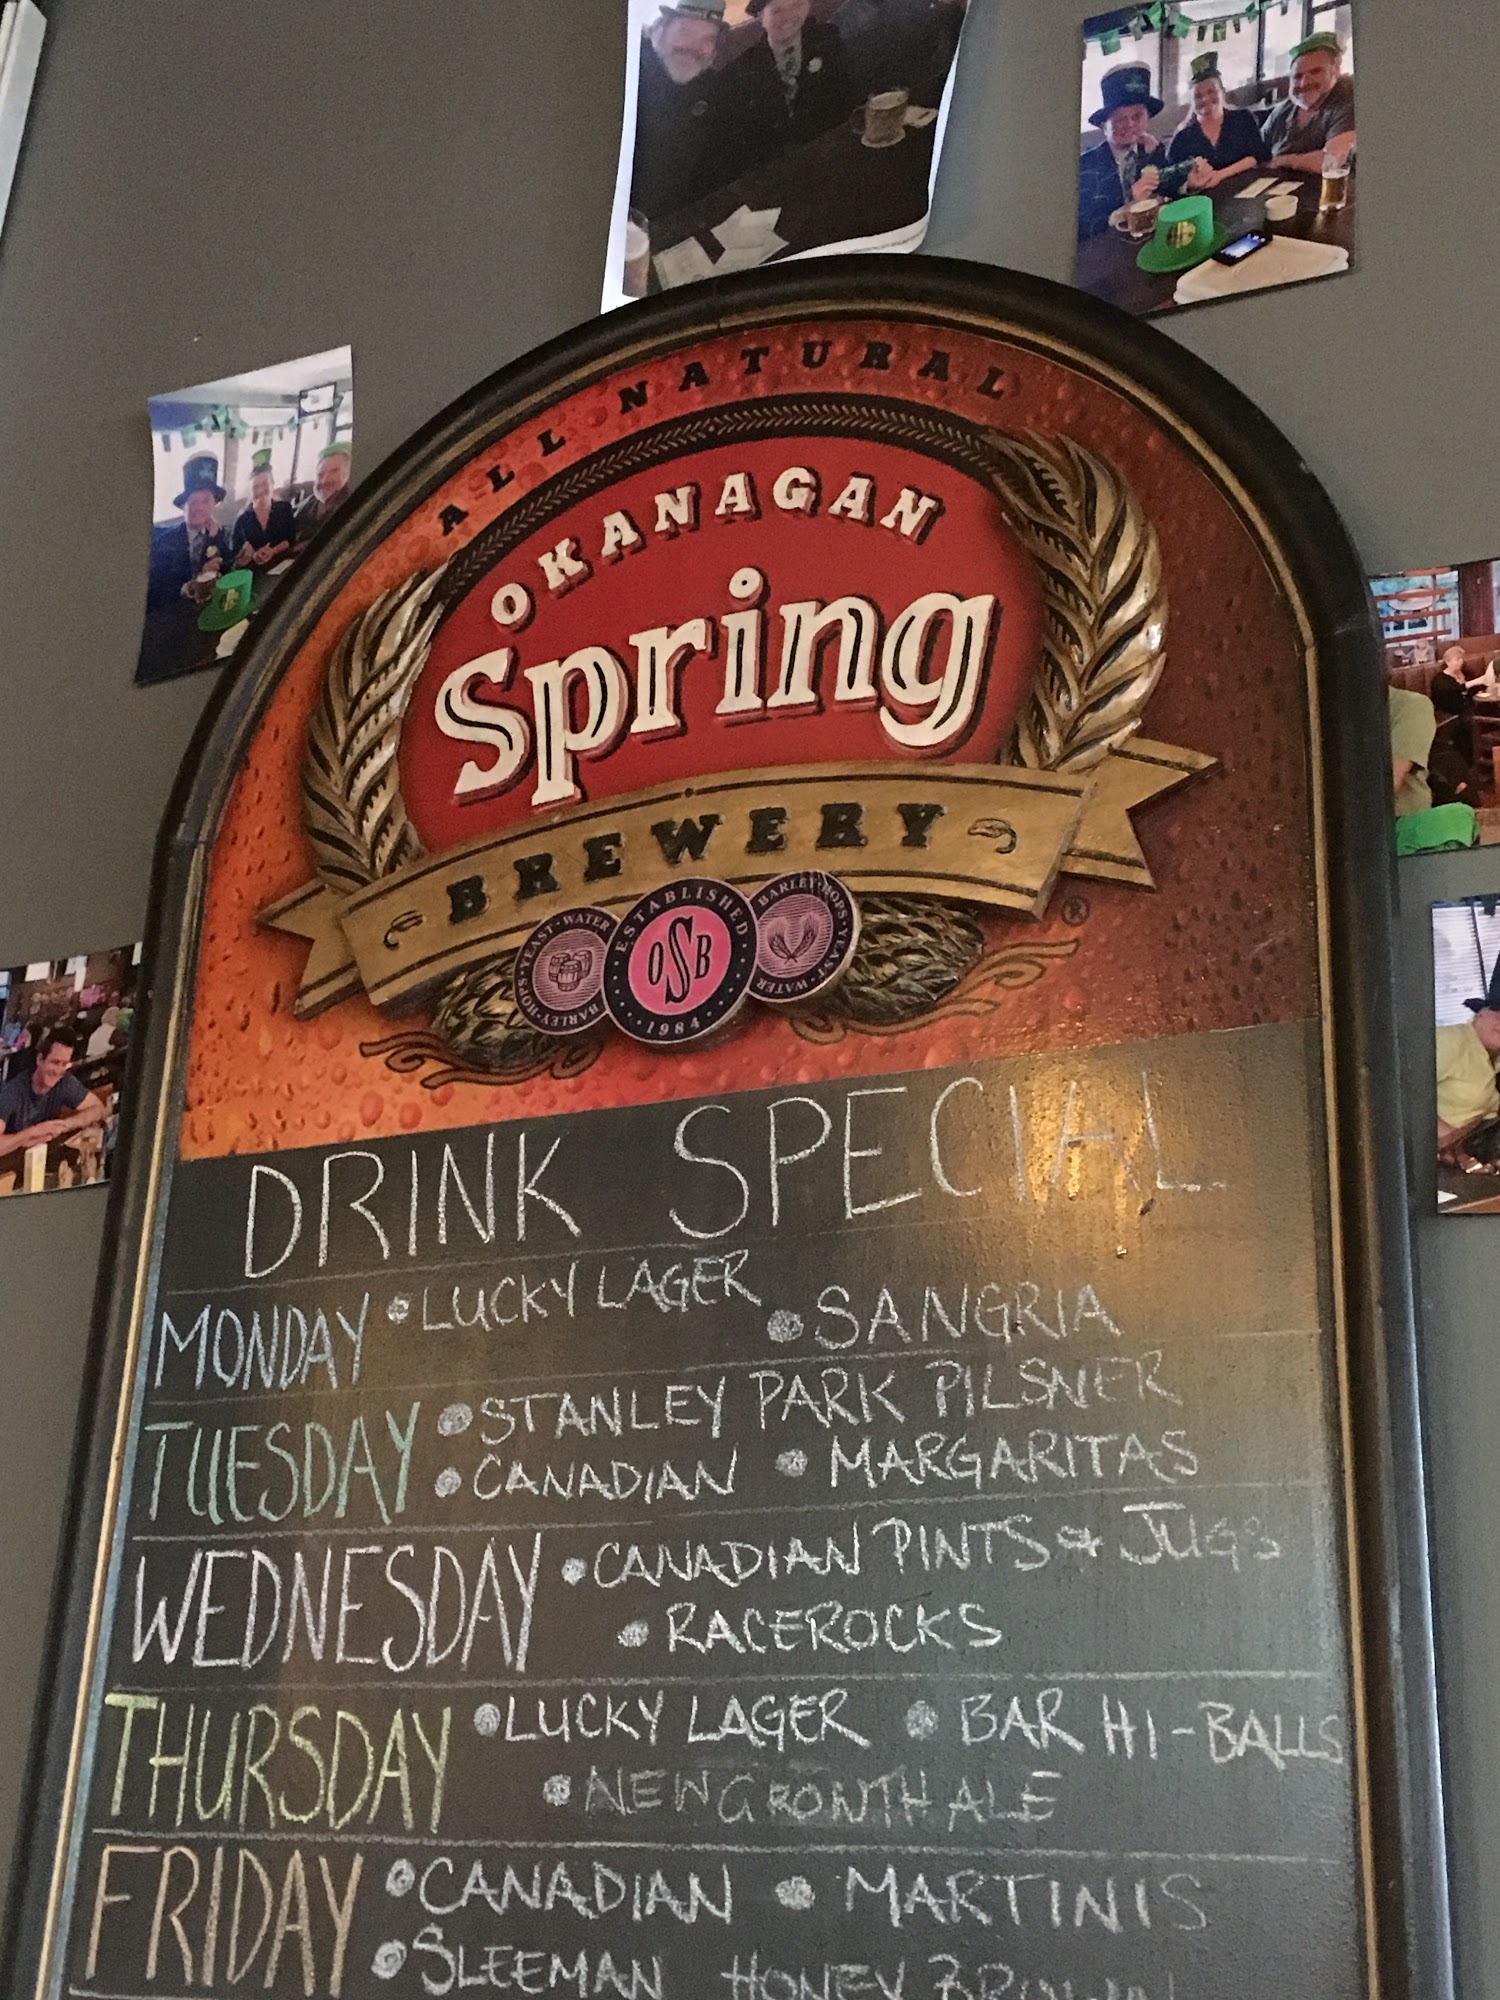 ALL NATURAL
OKANAGAN
Spring
BREWERY
BARLEY·HOPS·YEAST·WATER
ESTABLISHED
OSB
1984
BARLEY·HOPS·YEAST·WATER
®
DRINK SPECIAL
MONDAY • LUCKY LAGER • SANGRIA
TUESDAY • STANLEY PARK PILSNER
• CANADIAN • MARGARITAS
WEDNESDAY • CANADIAN PINTS & JUGS
• RACEROCKS
THURSDAY • LUCKY LAGER • BAR HI-BALLS
• NEWGROWTH ALE
FRIDAY • CANADIAN • MARTINIS
• SLEEMAN HONEY BROWN